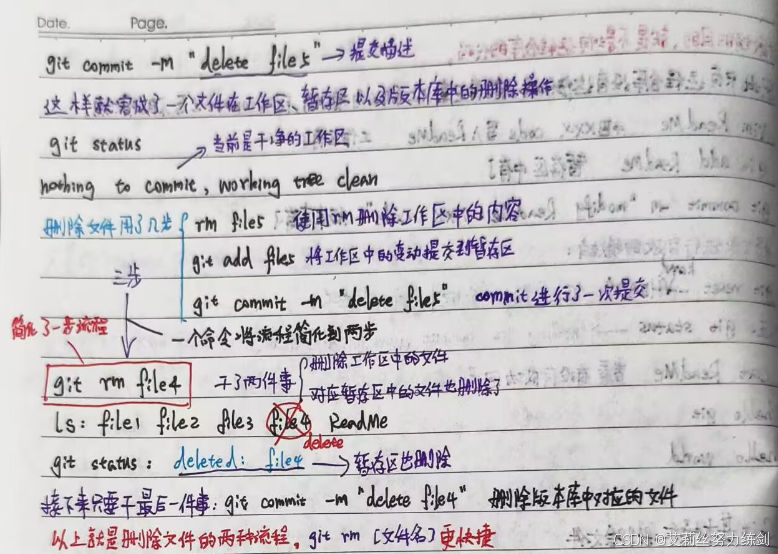 Date. Page.
git commit -m "delete file5" → 提交描述
这样就完成了一个文件在工作区、暂存区以及版本库中的删除操作
git status 当前是干净的工作区
nothing to commit, working tree clean
删除文件用了几步 rm file5 使用rm删除工作区中的内容
git add file5 将工作区中的变动提交到暂存区
三步
git commit -m "delete file5" commit进行了一次提交
简化了一步流程 一个命令将流程简化到两步
git rm file4 干了两件事 删除工作区中的文件
对应暂存区中的文件也删除了
ls: file1 file2 file3 file4 ReadMe
delete
git status: deleted: file4 → 暂存区也删除
接下来只要干最后一件事: git commit -m "delete file4" 删除版本库中对应的文件
以上就是删除文件的两种流程, git rm [文件名] 更快捷
CSDN @艾莉丝努力练剑